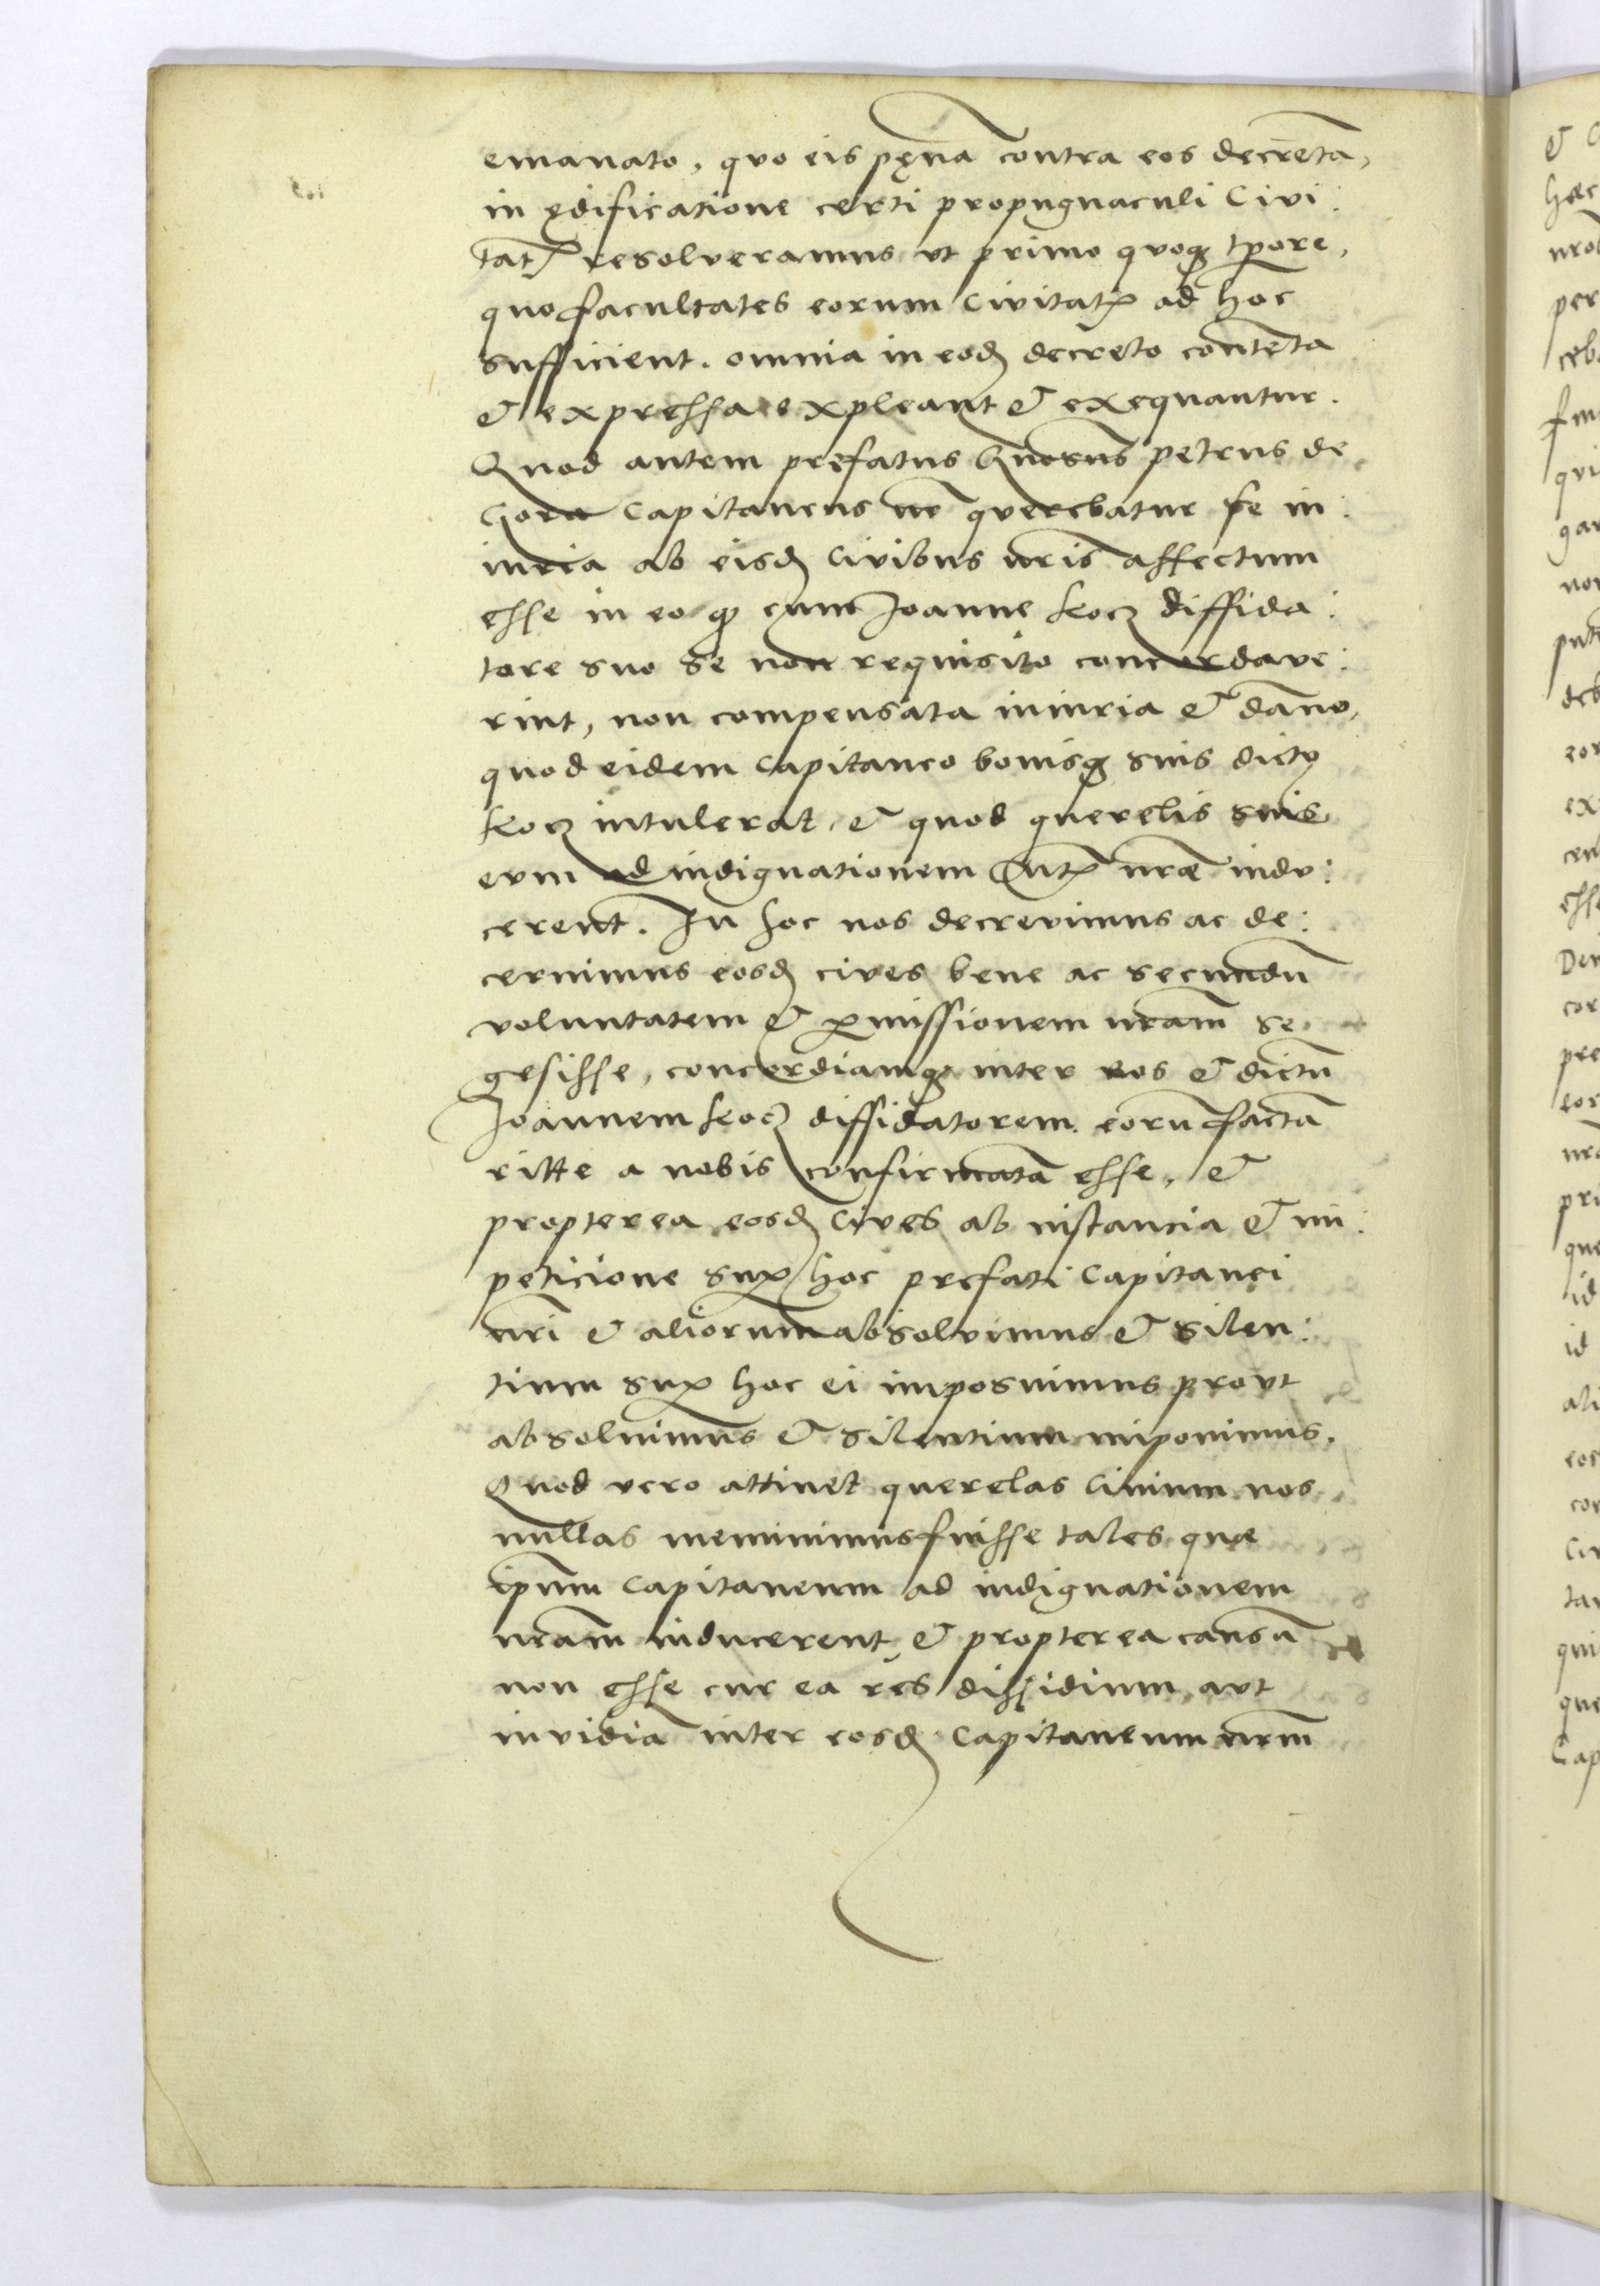 emanato, quo eis pęnā contra eos decretā,
in ędificatione certi propugnaculi Civi:
tatꝭ resolveramus vt primo quoqꝫ tp̄ore,
quo facultates eorum Civitatꝭ ad hoc
sufficient. omnia in eodꝫ decreto contēta
& expressa expleant & exequantur.
Quod autem pręfatus Gn̄osus petrus de
Gora Capitaneus nr̄ querebatur se in:
iuria ab eisdꝫ Civibus nr̄is affectum
esse in eo qꝫ cum Joanne kocz diffida:
tore suo se non requisito concordave:
rint, non compensata iniuria & dāno,
quod eidem Capitaneo bonisqꝫ suis dictꝰ
kocz intulerat, & quod querelis suis
eum ad indignationem nr̄æ indu:
cerent. In hoc nos decrevimus ac de:
cernimus eosdꝫ cives bene ac secundū
voluntatem & ꝑmissionem nr̄am se
gesisse, concordiamqꝫ inter eos & dictū
Joannem kocz diffidatorem eorū factā
ritte a nobis confirmatā esse, &
propterea eosdꝫ Cives ab instancia & im:
peticione suꝑ hoc prefati Capitanei
nr̄i & aliorum absolvimus & silen:
tium suꝑ hoc ei imposuimus provt
absoluimus & silentium imponimus.
Quod vero attinet querelas Civium nos
nullas meminimus fuisse tales quæ
ip̄um Capitaneum ad indignationem
nr̄am inducerent & propterea causā
non esse cur ea res dissidium avt
invidiā inter eosdꝫ Capitaneum nr̄m